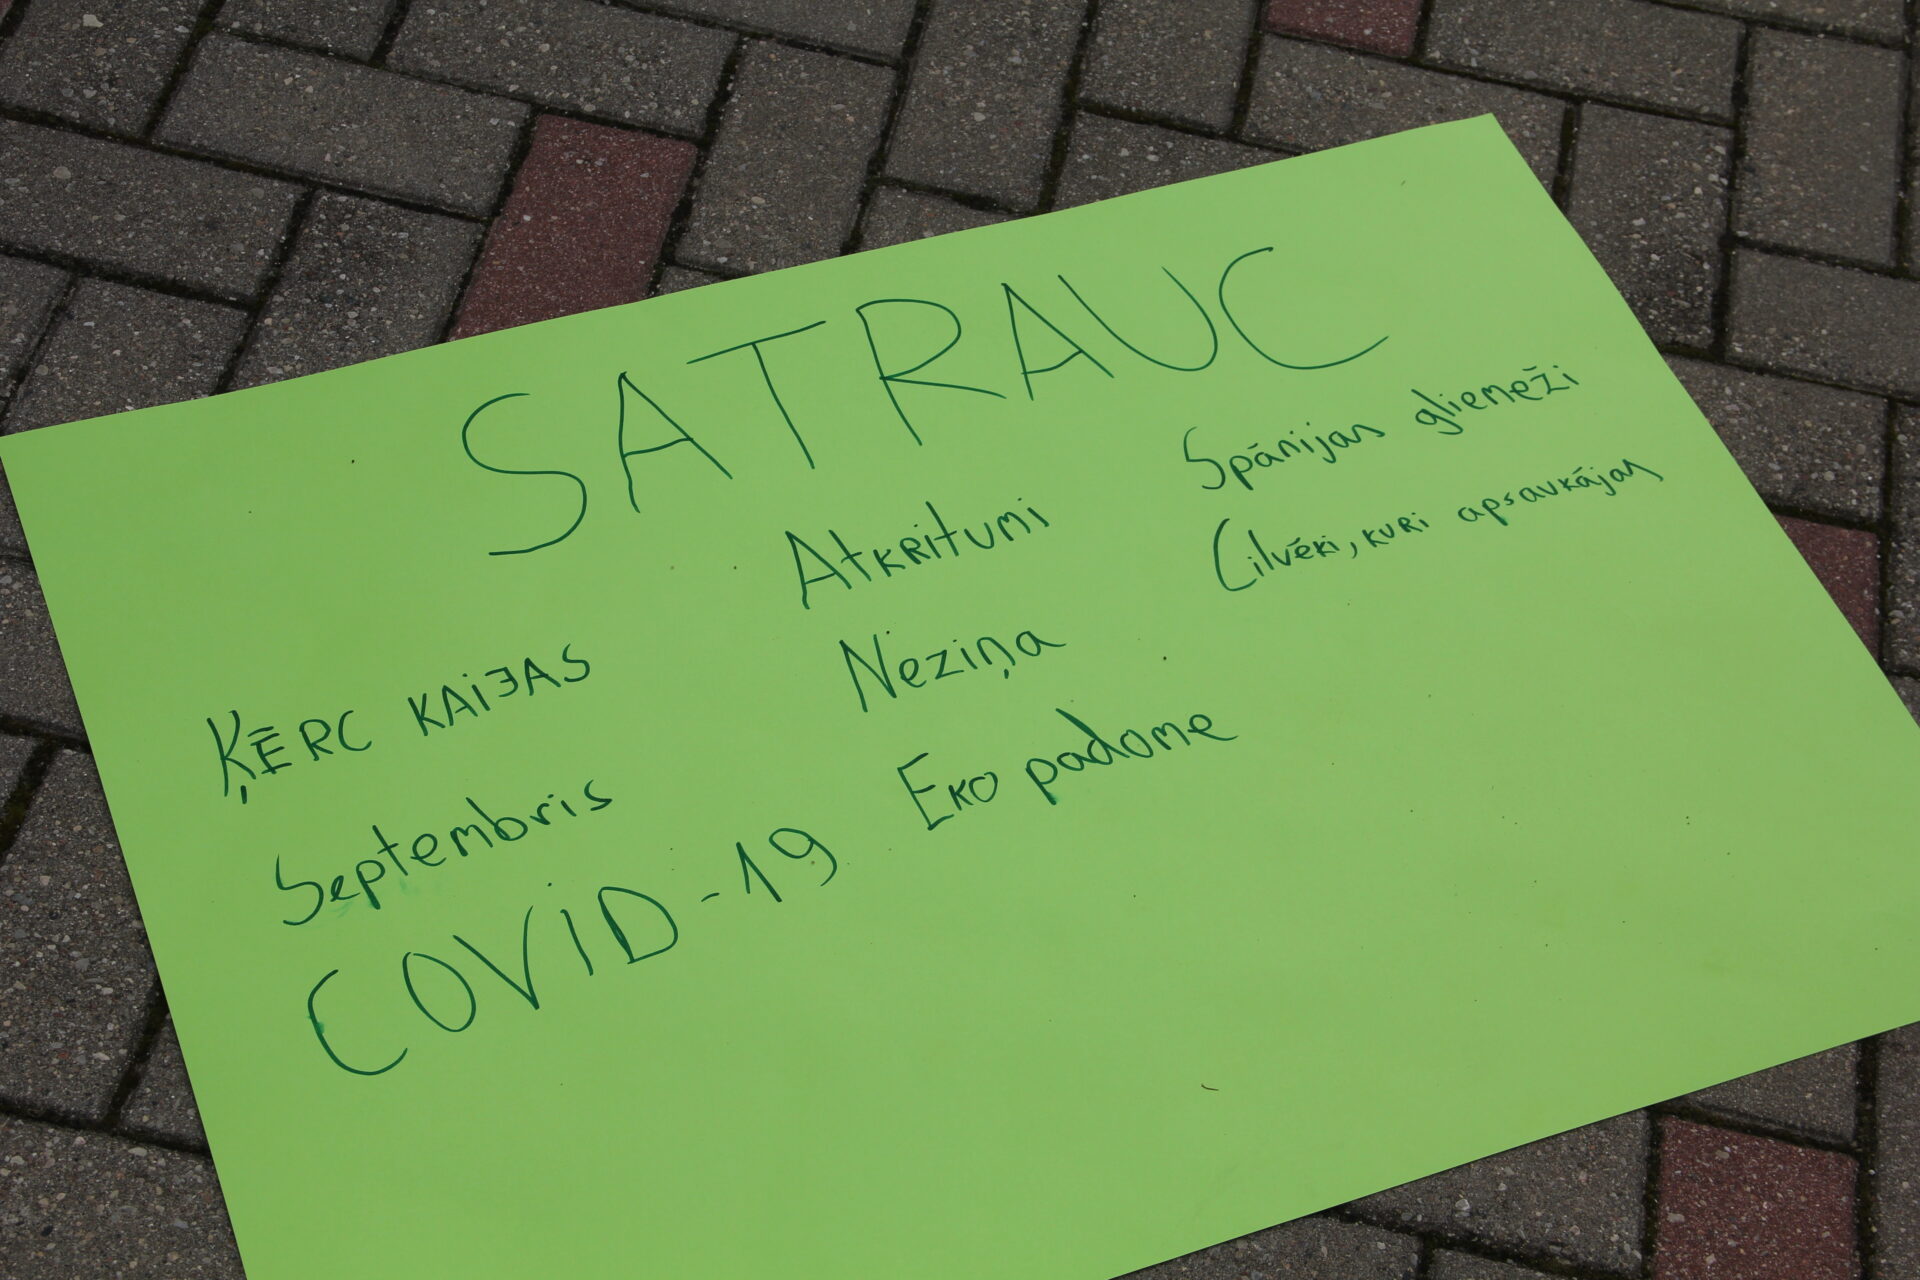 SATRAUC
ĶĒRC KAIJAS
Septembris
COVID-19
Atkritumi
Neziņa
Eko padome
Spānijas gliemeži
Cilvēki, kuri apsaukājas